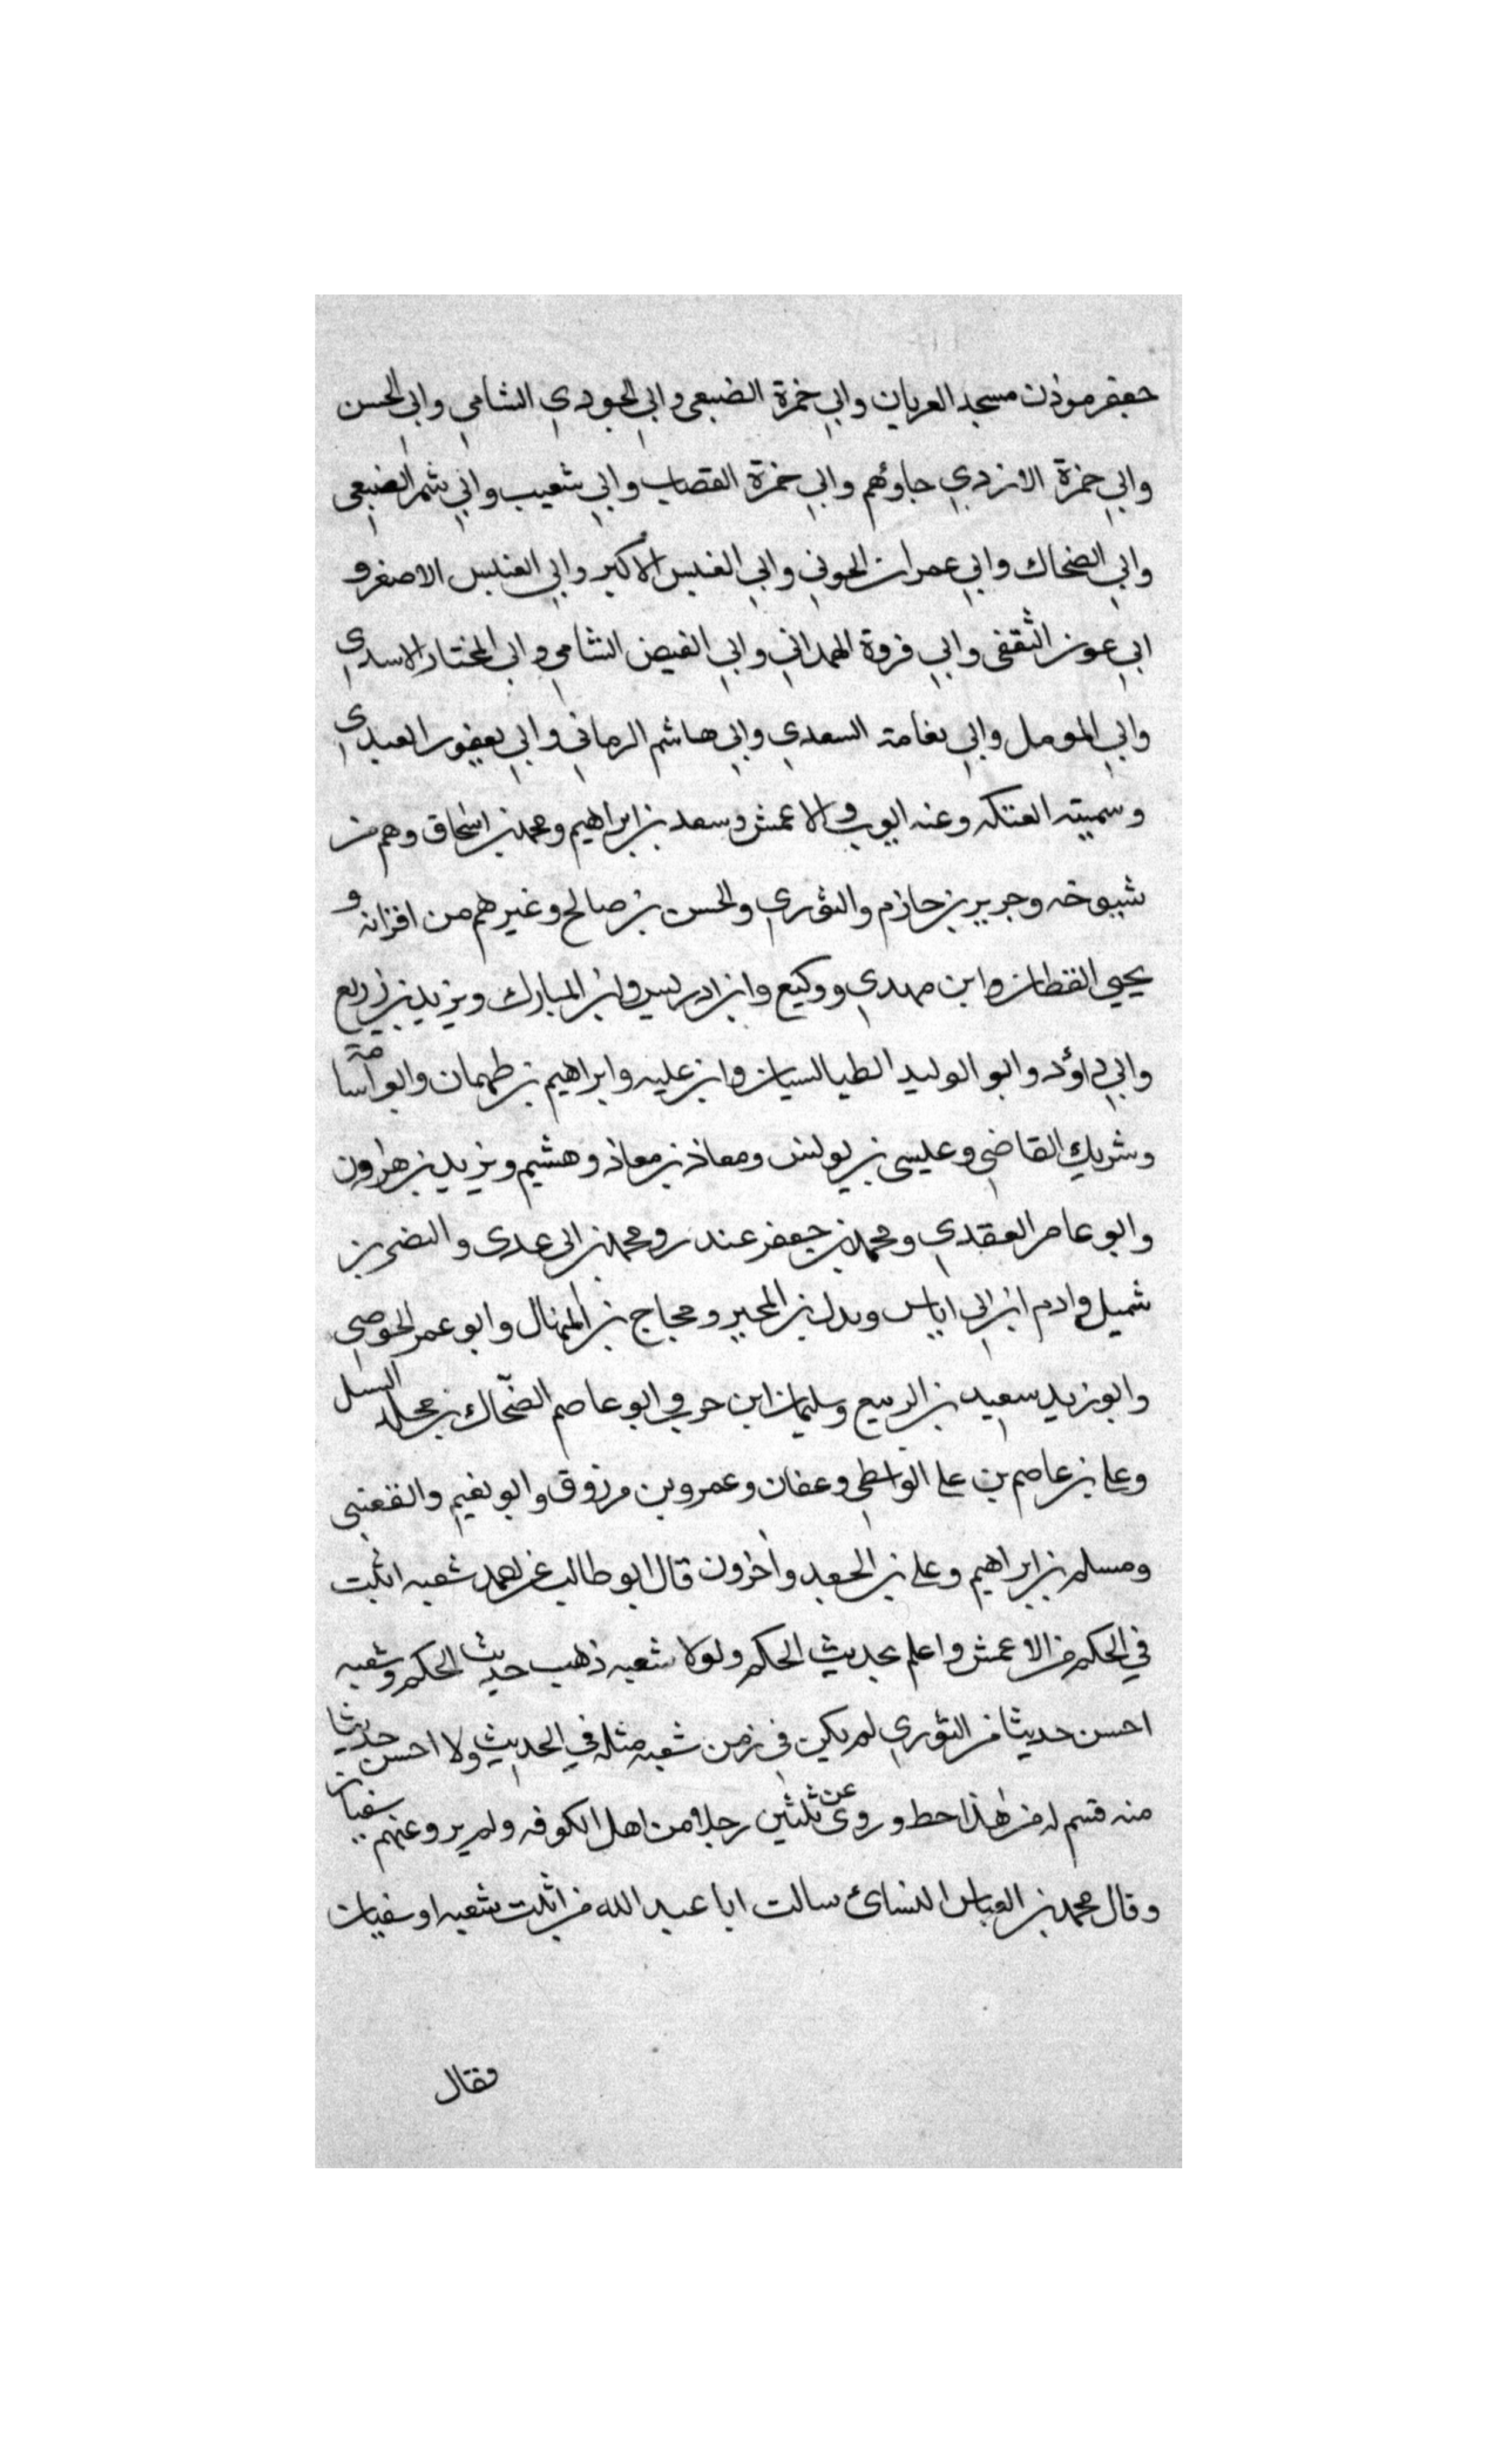 جعفر موذن مسجد العريان وابي خمرة الضبعي وابي الجودي الشامي وابي الحسن
وابي حمزة الازدي جاوئهم وابي حمزة القصاب وابي شعيب وابي شمر الضبعي
وابي الضحاك وابي عمران الجوني وابي العنبس الاكبر وابي العنبس الاصغر و
ابي عون الثقفي وابي فروة الهمداني وابي الفيض الشامي وابي المختار الاسدي
وابي المومل وابي نعامة السعدي وابي هاشم الرماني وابي يعفور العبدي
وسميته العتكه وعنه ايوب والاعمش وسعد بن ابراهيم ومحمد بن اسحاق وهم من
شيوخه وجرير بن حازم والثوري والحسن بن صالح وغيرهم من اقرانه و
يحيى القطان وابن مهدي ووكيع وابن ادريس وابن المبارك ويزيد بن زريع
وابي داؤد وابو الوليد الطيالسيان وابن عليه وابراهيم بن طهمان وابو اسامة
وشريك القاضي وعيسى بن يونس ومعاذ بن معاذ وهشيم ويزيد بن هارون
وابو عامر العقدي ومحمد بن جعفر عندر ومحمد بن ابي عدى والنضر بن
شميل وادم ابن ابي اياس وبدل بن المحبر وحجاج بن المنهال وابو عمر الحوضي
وابو زيد سعيد بن الربيع وسليمان ابن حرب وابو عاصم الضحّاك بن مخلد
وعلي بن عاصم بن علي الواسطي وعفان وعمرو بن مرزوق وابو نعيم والقعنبي
ومسلم بن ابراهيم وعلي بن الجعد واخرون قال ابو طالب عن احمد شعبه اثبت
في الحكم من الاعمش واعلم بحديث الحكم ولولا شعبه ذهب حديث الحكم وشعبه
احسن حديثا من الثوري لم يكن في زمن شعبه مثله في الحديث ولا احسن حديثا
منه قسم له من هذا حط وروى عن ثلثين رجلا من اهل الكوفه ولم يرو عنهم سفيان
وقال محمد بن العباس النسائ سالت ابا عبد الله من اثبت شعبه او سفيان
فقال